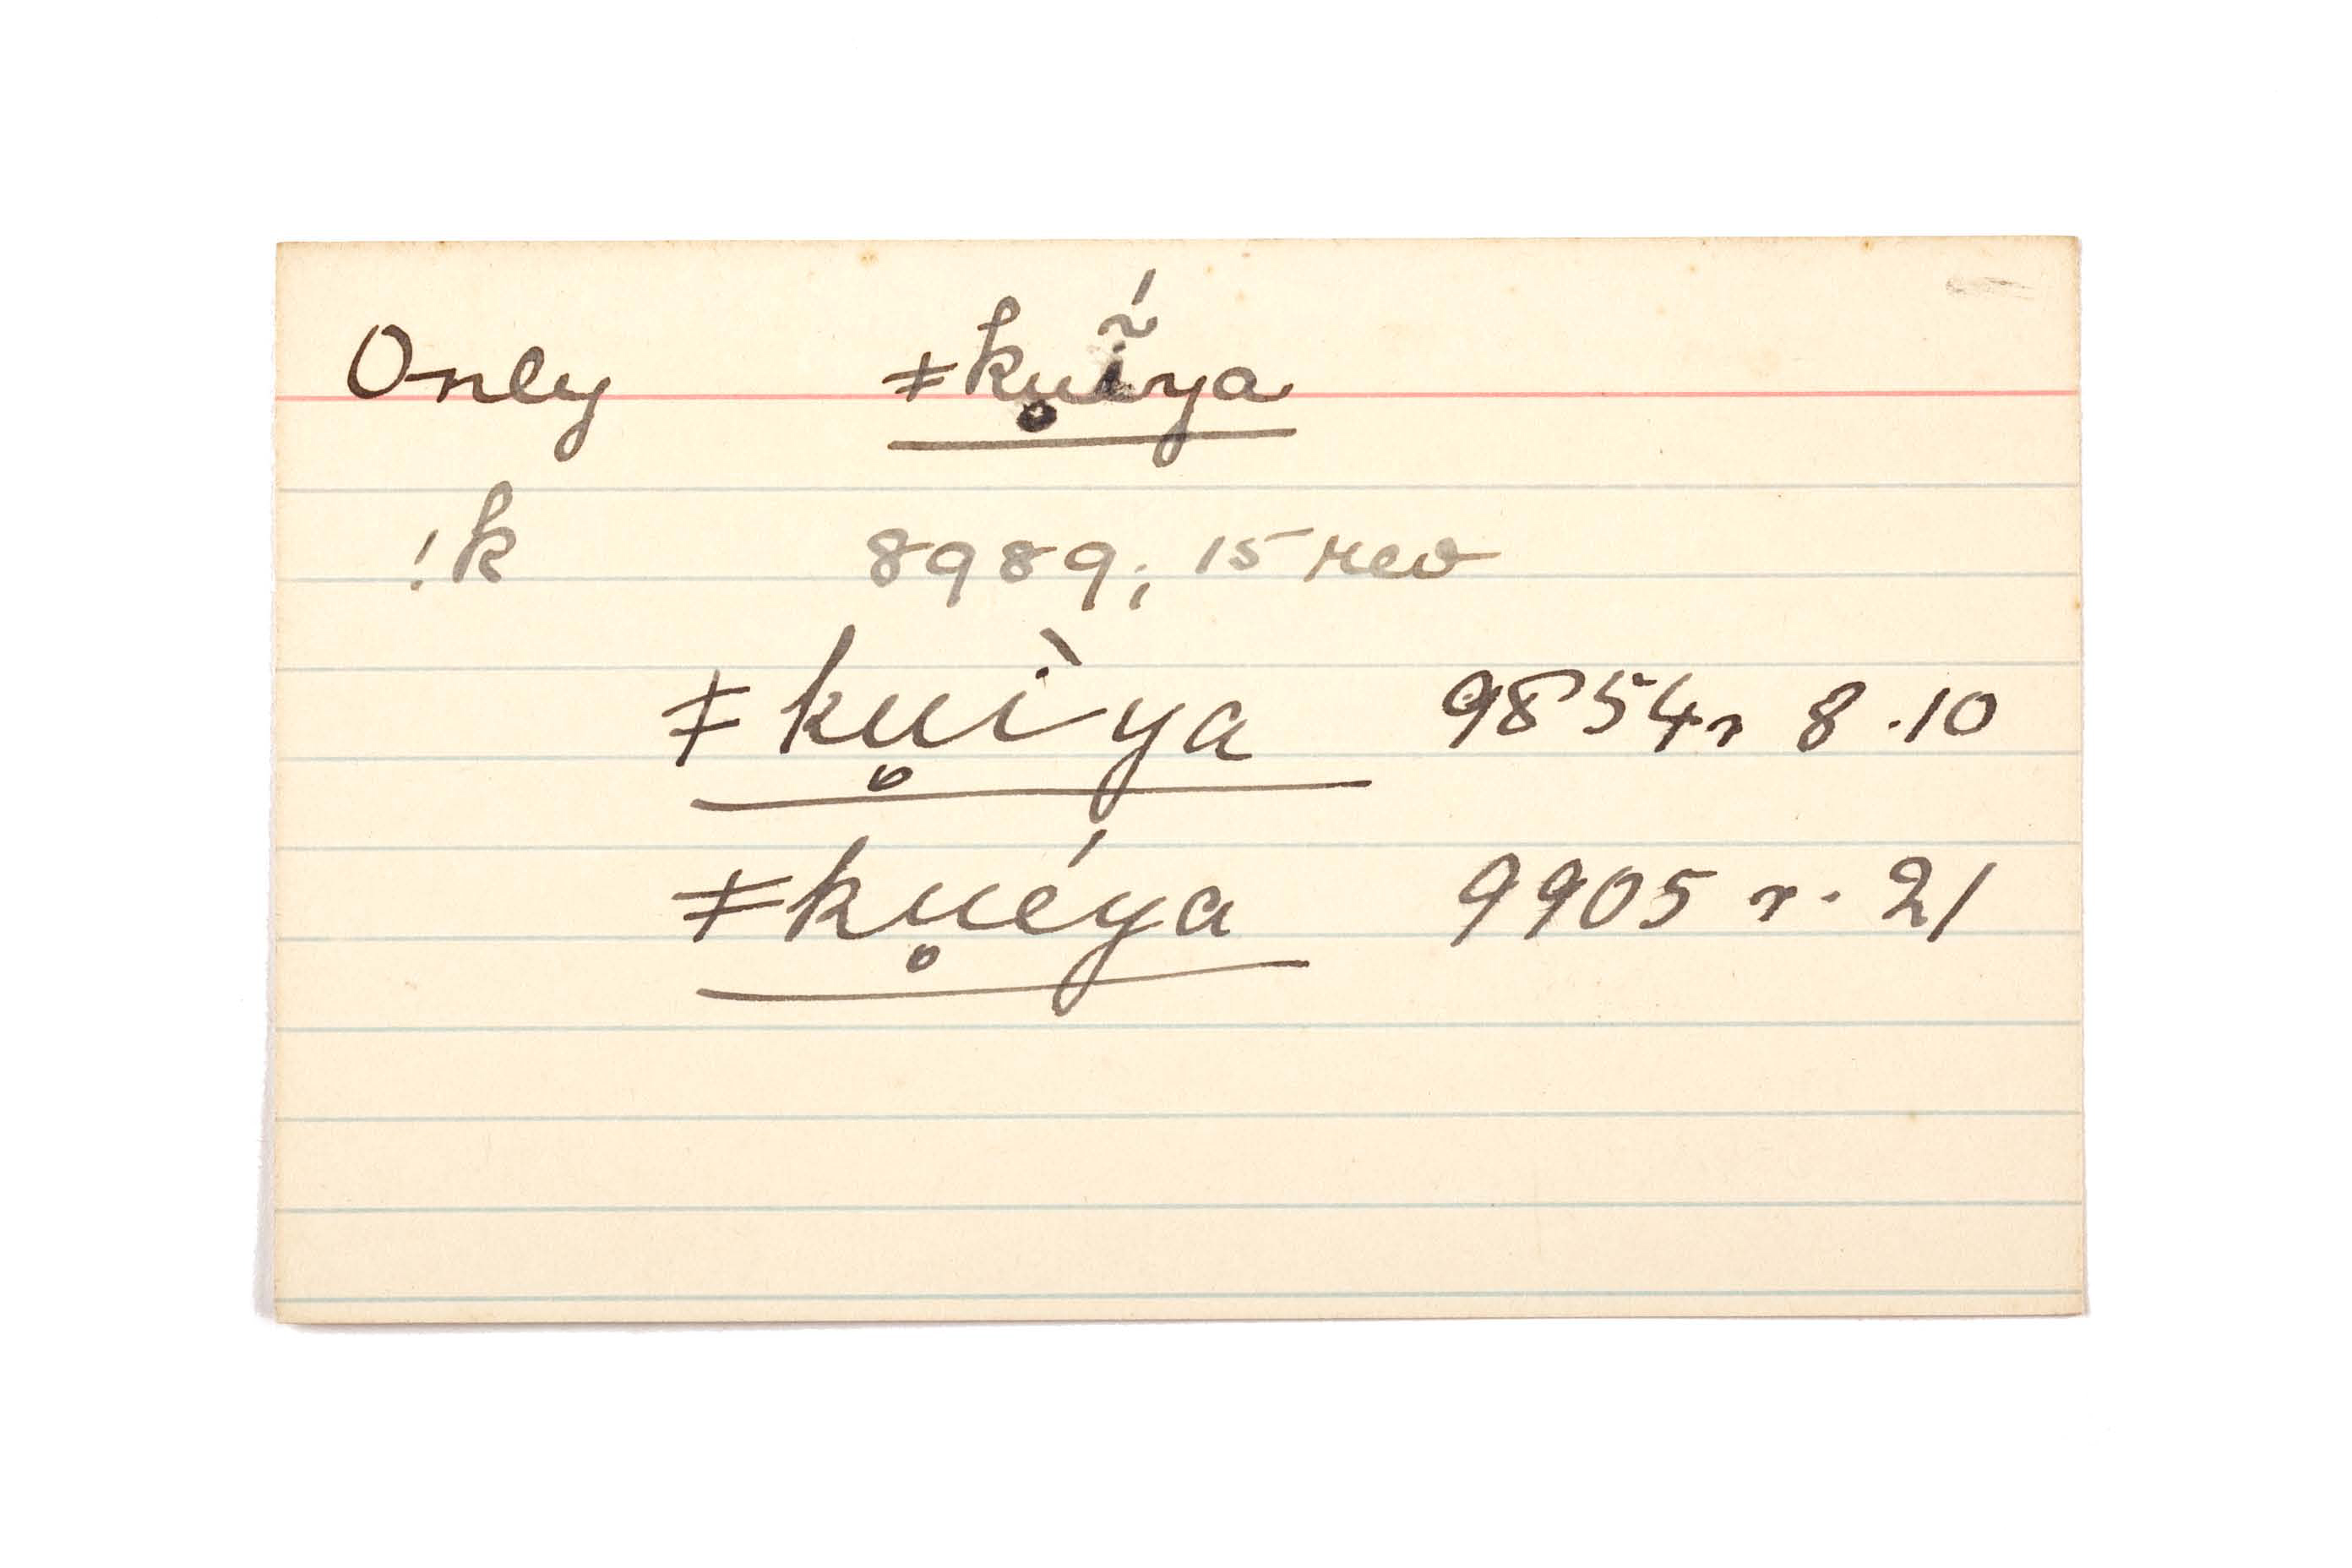 Only ǂku̥ĩ́ya
!k 8989; 15 rev
ǂku̥ìya 9854r 8.10
ǂku̥éya 9905 r. 21